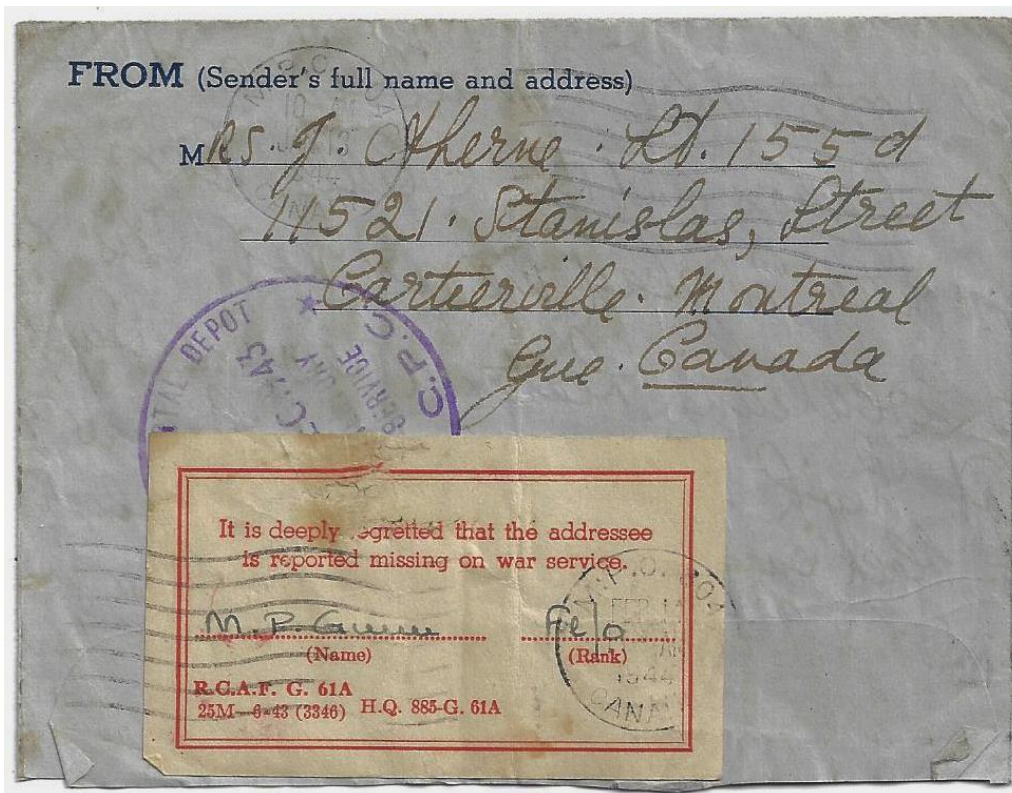 FROM (Sender's full name and address)
MRs. J. Aherne. Lt. 155d
11521. Stanislas, Street
Cartierville. Montreal
Que. Canada
DEPOT
C.P.C.
SERVICE
1943
It is deeply regretted that the addressee
is reported missing on war service.
M. P.
(Name)
(Rank)
R.C.A.F. G. 61A
25M—6-43 (3346) H.Q. 885-G. 61A
M.P.O.
1944
CANA